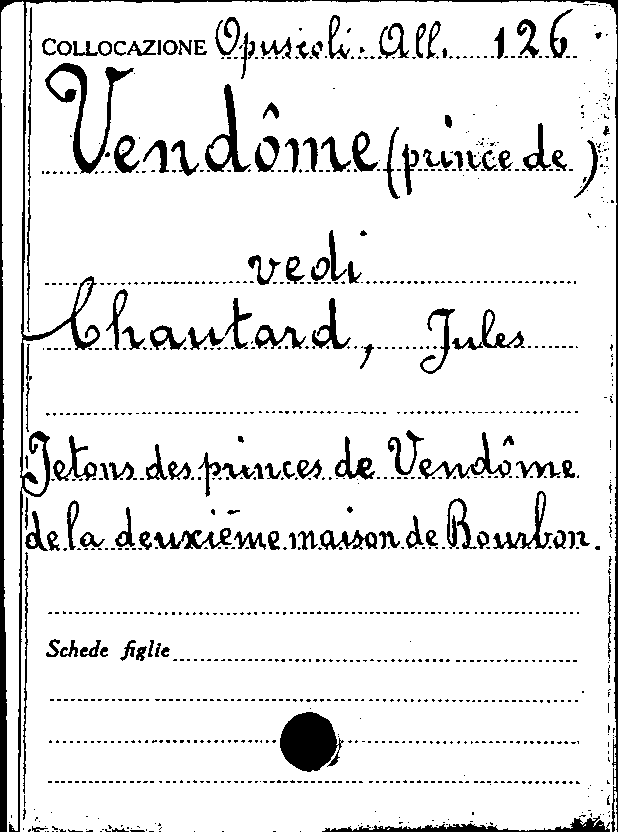 COLLOCAZIONE Opuscoli. All. 126
Vendôme (prince de)
vedi
Chautard, Jules
Jetons des princes de Vendôme
de la deuxième maison de Bourbon.
Schede figlie